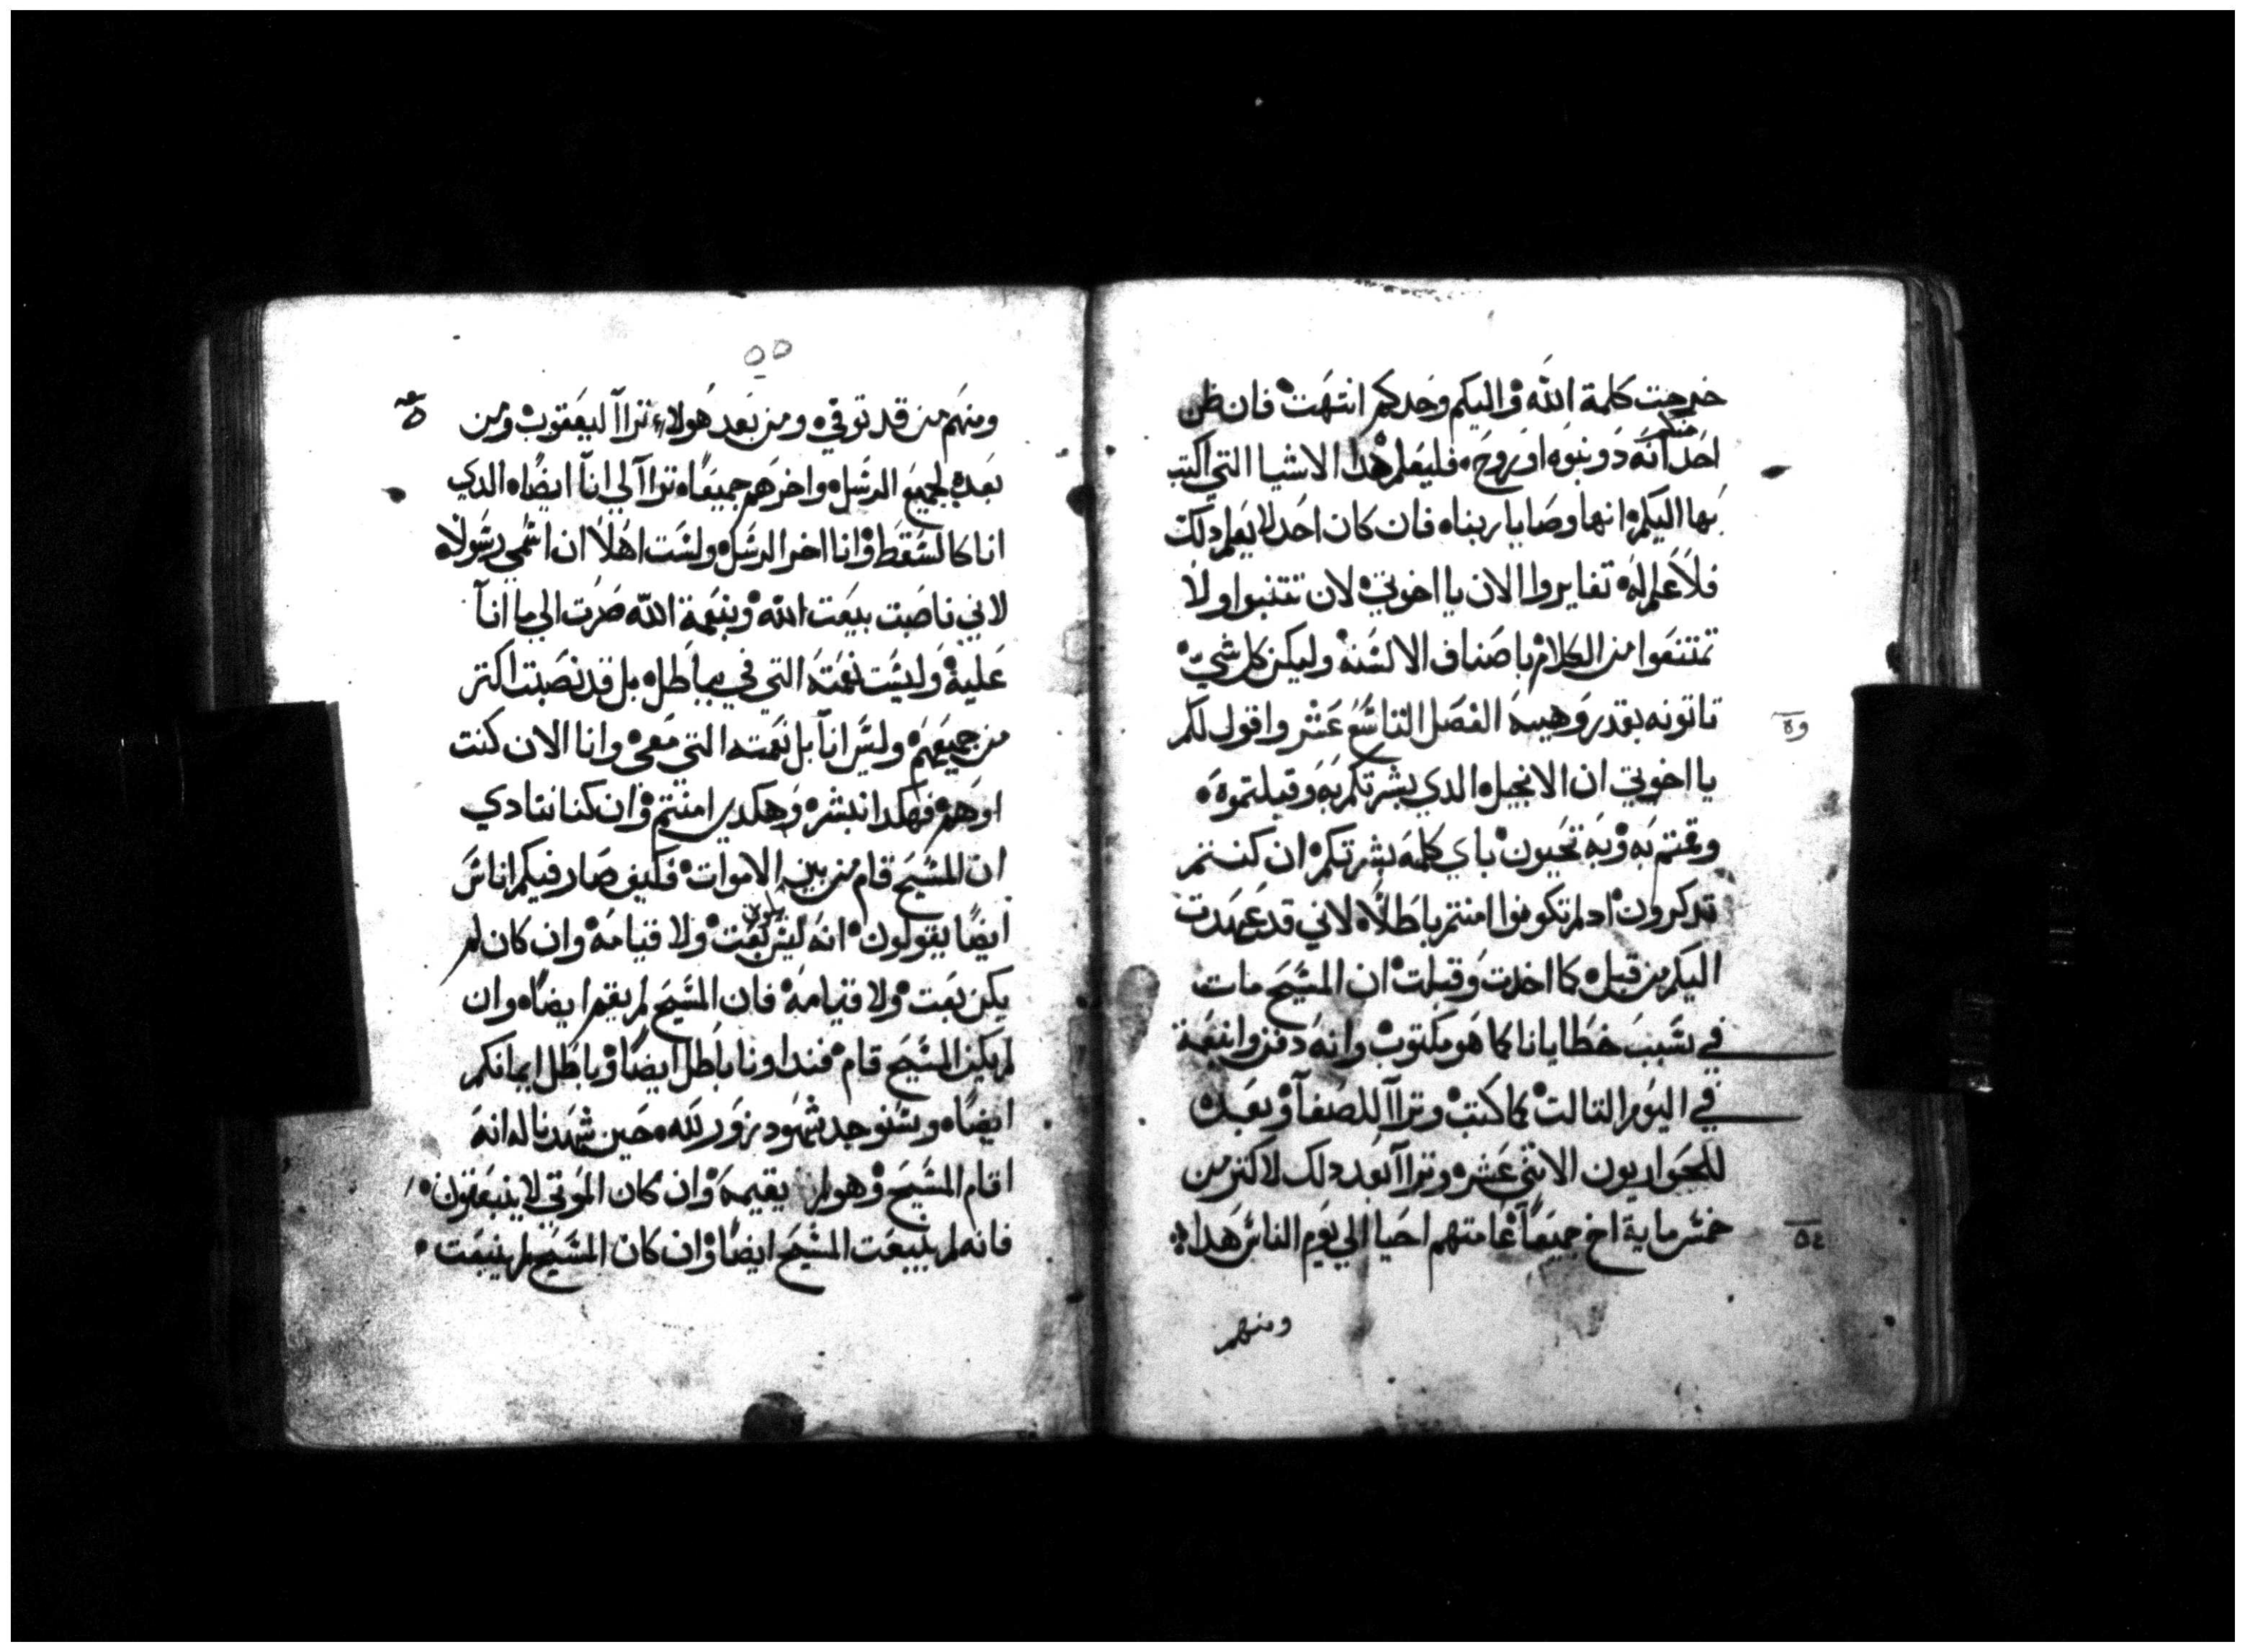 خرجت كلمة الله واليكم وحدكم انتهت فان ظن
منكم
احد انه دو نبوه او روح فليعلم هدا الاشيا التي اكتب
بها اليكم انها وصايا ربنا فان كان احد لا يعلم دلك
فلا علم له تغايروا الان يا اخوتي لان تتنبوا ولا
تمتنعوا من الكلام باصناف الالسنه وليكن كل شي
تاتونه بقدر وهيبه الفصل التاسع عشر واقول لكم
وة
يا اخوتي ان الانجيل الدي بشرتكم به وقبلتموه
وقمتم به وبه تحيون باي كلمه بشرتكم ان كنتم
تدكرون اد لم تكونوا امنتم باطلا لاني قد عهدت
اليكم من قبل كما اخدت وقبلت ان المسيح مات
في سبب خطايانا كما هو مكتوب وانه دفن وانبعت
في اليوم التالت كما كتب وتراا للصفا وبعده
للحواريون الاتني عشر وتراا بعد دلك لاكتر من
خمس ماية اخ جميعا عامتهم احيا الي يوم الناس هدا
٥٤
ومنهم
٥٥
ومنهم من قد توفي ومن بعد هولاء تراا ليعقوب ومن
بعده لجميع الرسل واخرهم جميعا تراا لي انا ايضا الدي
انا كالسقط وانا اخر الرسل ولست اهلا ان اسمي رسولا
لاني ناصبت بيعت الله وبنعمة الله صرت الي ما انا
عليه وليست نعمته التي في بباطل بل قد نصبت اكتر
من جميعهم وليس انا بل نعمته التي معي وانا الان كنت
اوهم فهكدا نبشر وهكدي امنتم وان كنا ننادي
ان المسيح قام من بين الاموات فكيف صار فيكم اناس
ايضا يقولون انه ليس بعت ولا قيامه وان كان لم
يكن بعت ولا قيامه فان المسيح لم يقم ايضا وان
لم يكن المسيح قام فنداونا باطل ايضا وباطل ايمانكم
ايضا وسنوجد شهود زور لله حين شهدنا له انه
اقام المسيح وهو لم يقيمه وان كان الموتي لا ينبعتون
فانه لم ينبعت المسيح ايضا وان كان المسيح لم ينبعت